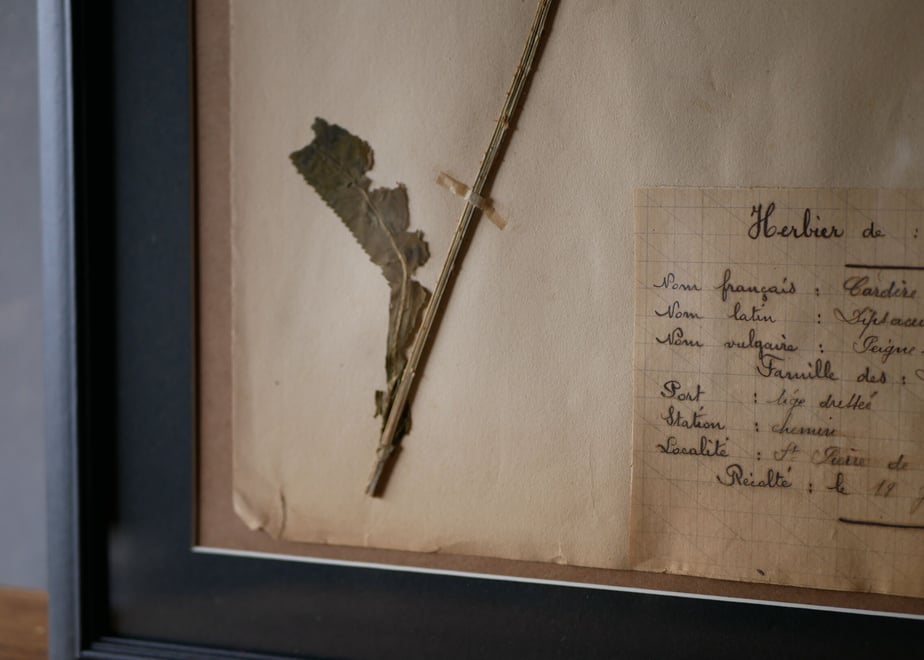 Herbier de :
Nom français : Cardère
Nom latin : Dipsacu
Nom vulgaire : Peigne
Famille des :
Port : tige dressée
Station : chemin
Localité : St Pierre de
Récolté : le 19